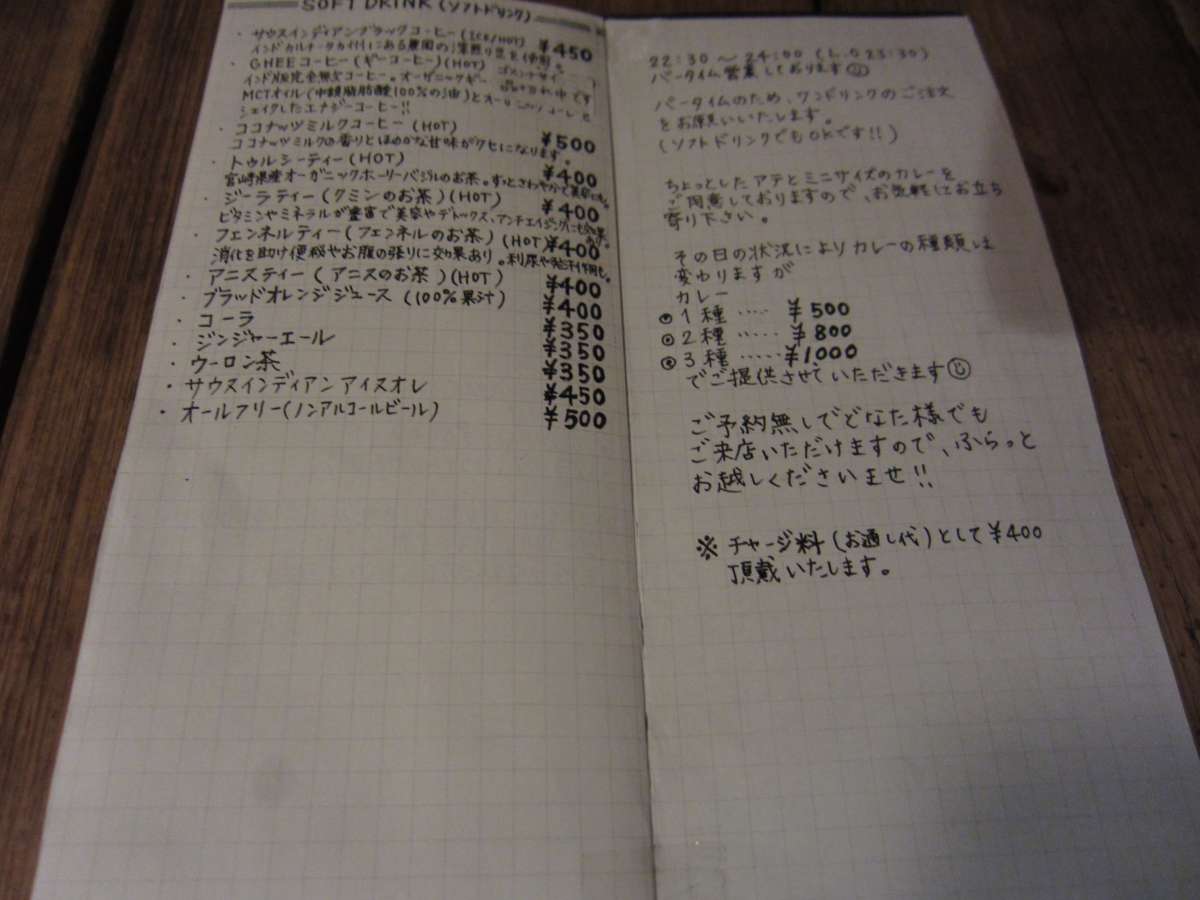 SOFT DRINK (ソフトドリンク)
・サウスインディアンブラックコーヒー (ICE/HOT) ¥450
インドカルナータカ州にある農園の深煎り豆を使用。
・GHEEコーヒー (ギーコーヒー)(HOT) ゴメンナサイ
インド版完全無欠コーヒー。オーガニックギー 品切れ中です
MCTオイル(中鎖脂肪酸100%の油)と
シェイクしたエナジーコーヒー!!
・ココナッツミルクコーヒー (HOT) ¥500
ココナッツミルクの香りとほのかな甘味がクセになります。
・トゥルシーティー (HOT) ¥400
宮崎県産オーガニックホーリーバジルのお茶。すっとさわやかで美容にも。
・ジーラティー (クミンのお茶) (HOT) ¥400
ビタミンやミネラルが豊富で美容やデトックス、アンチエイジングにも効果あり。
・フェンネルティー (フェンネルのお茶) (HOT) ¥400
消化を助け便秘やお腹の張りに効果あり。利尿や発汗作用も。
・アニスティー ( アニスのお茶 ) (HOT) ¥400
・ブラッドオレンジジュース (100%果汁) ¥400
・コーラ ¥350
・ジンジャーエール ¥350
・ウーロン茶 ¥350
・サウスインディアン アイスオレ ¥450
・オールフリー (ノンアルコールビール) ¥500
22:30 〜 24:00 (L.O 23:30)
バータイム営業しております
バータイムのため、ワンドリンクのご注文
をお願いいたします。
(ソフトドリンクでもOKです!!)
ちょっとしたアテとミニサイズのカレーを
ご用意しておりますので、お気軽にお立ち
寄り下さい。
その日の状況によりカレーの種類は
変わりますが
カレー
1種 ‥‥ ¥500
2種 ‥‥‥ ¥800
3種 ‥‥‥ ¥1000
でご提供させていただきます
ご予約無しでどなた様でも
ご来店いただけますので、ふらっと
お越しくださいませ!!
※ チャージ料 (お通し代) として ¥400
頂戴いたします。